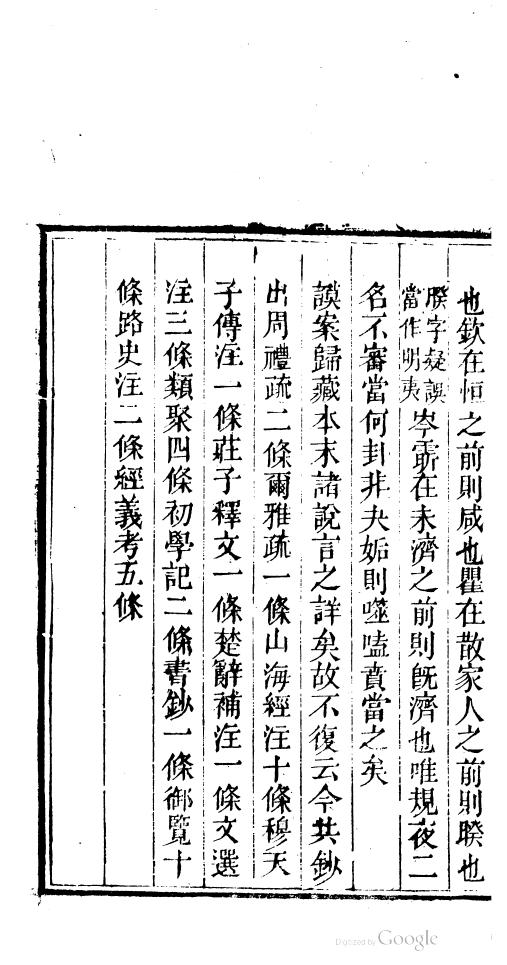 也欽在恒之前則咸也瞿在散家人之前則睽也
睽字疑誤
當作明夷
岑䨏在未濟之前則旣濟也唯規夜二
名不審當何卦非夬姤則噬嗑賁當之矣
謨案歸藏本末諸說言之詳矣故不復云今共鈔
出周禮疏二條爾雅疏一條山海經注十條穆天
子傳注一條莊子釋文一條楚辭補注一條文選
注三條類聚四條初學記二條書鈔一條御覽十
條路史注二條經義考五條
Digitized by Google